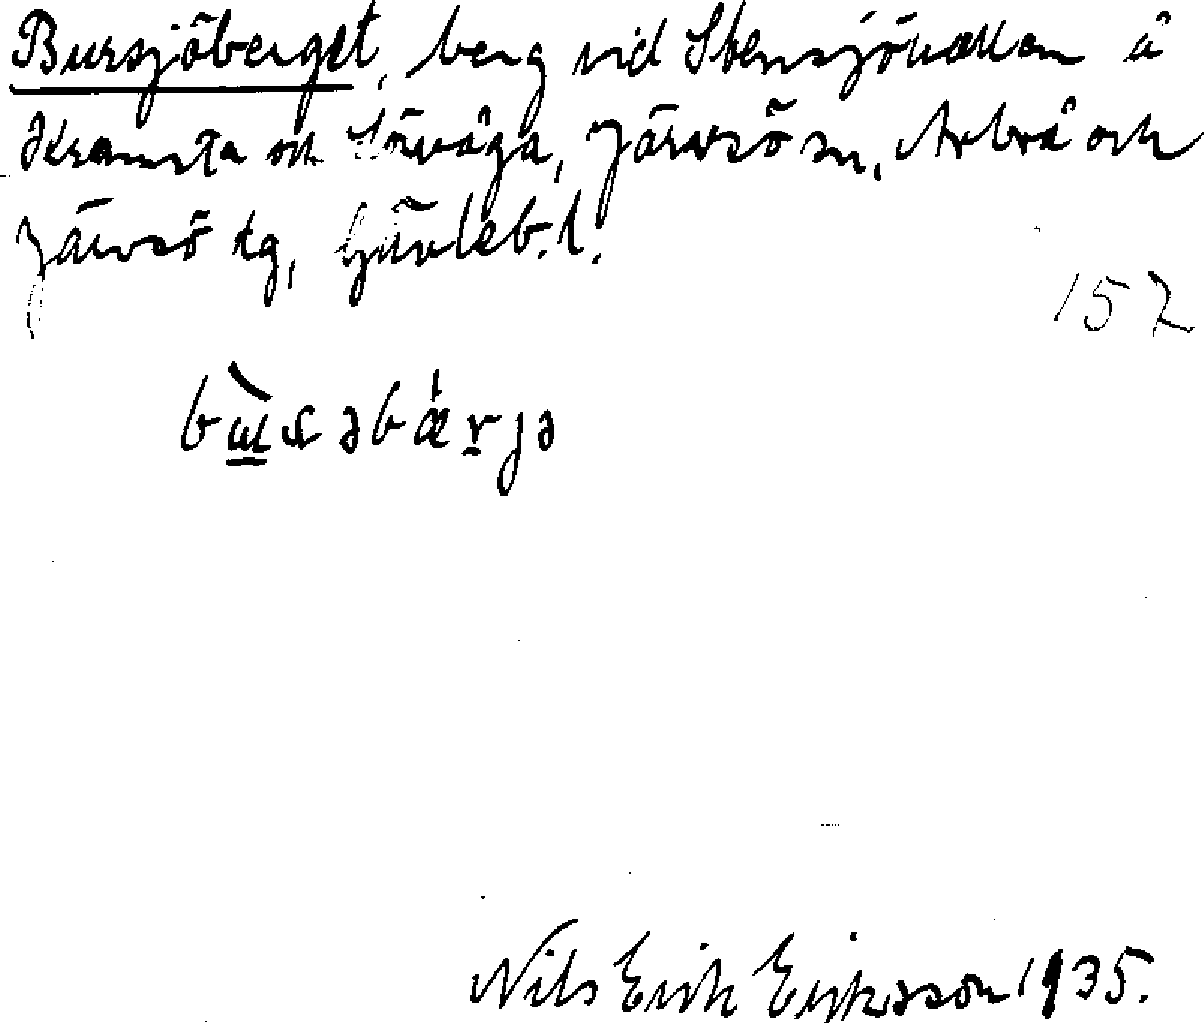 Bursjöberget, berg vid Stensjövallen å
Kramsta och Sörvåga, Järvsö sn, Arbrå och
Järvsö tg, Gävleb. l.
157
Nils Erik Eriksson 1935.